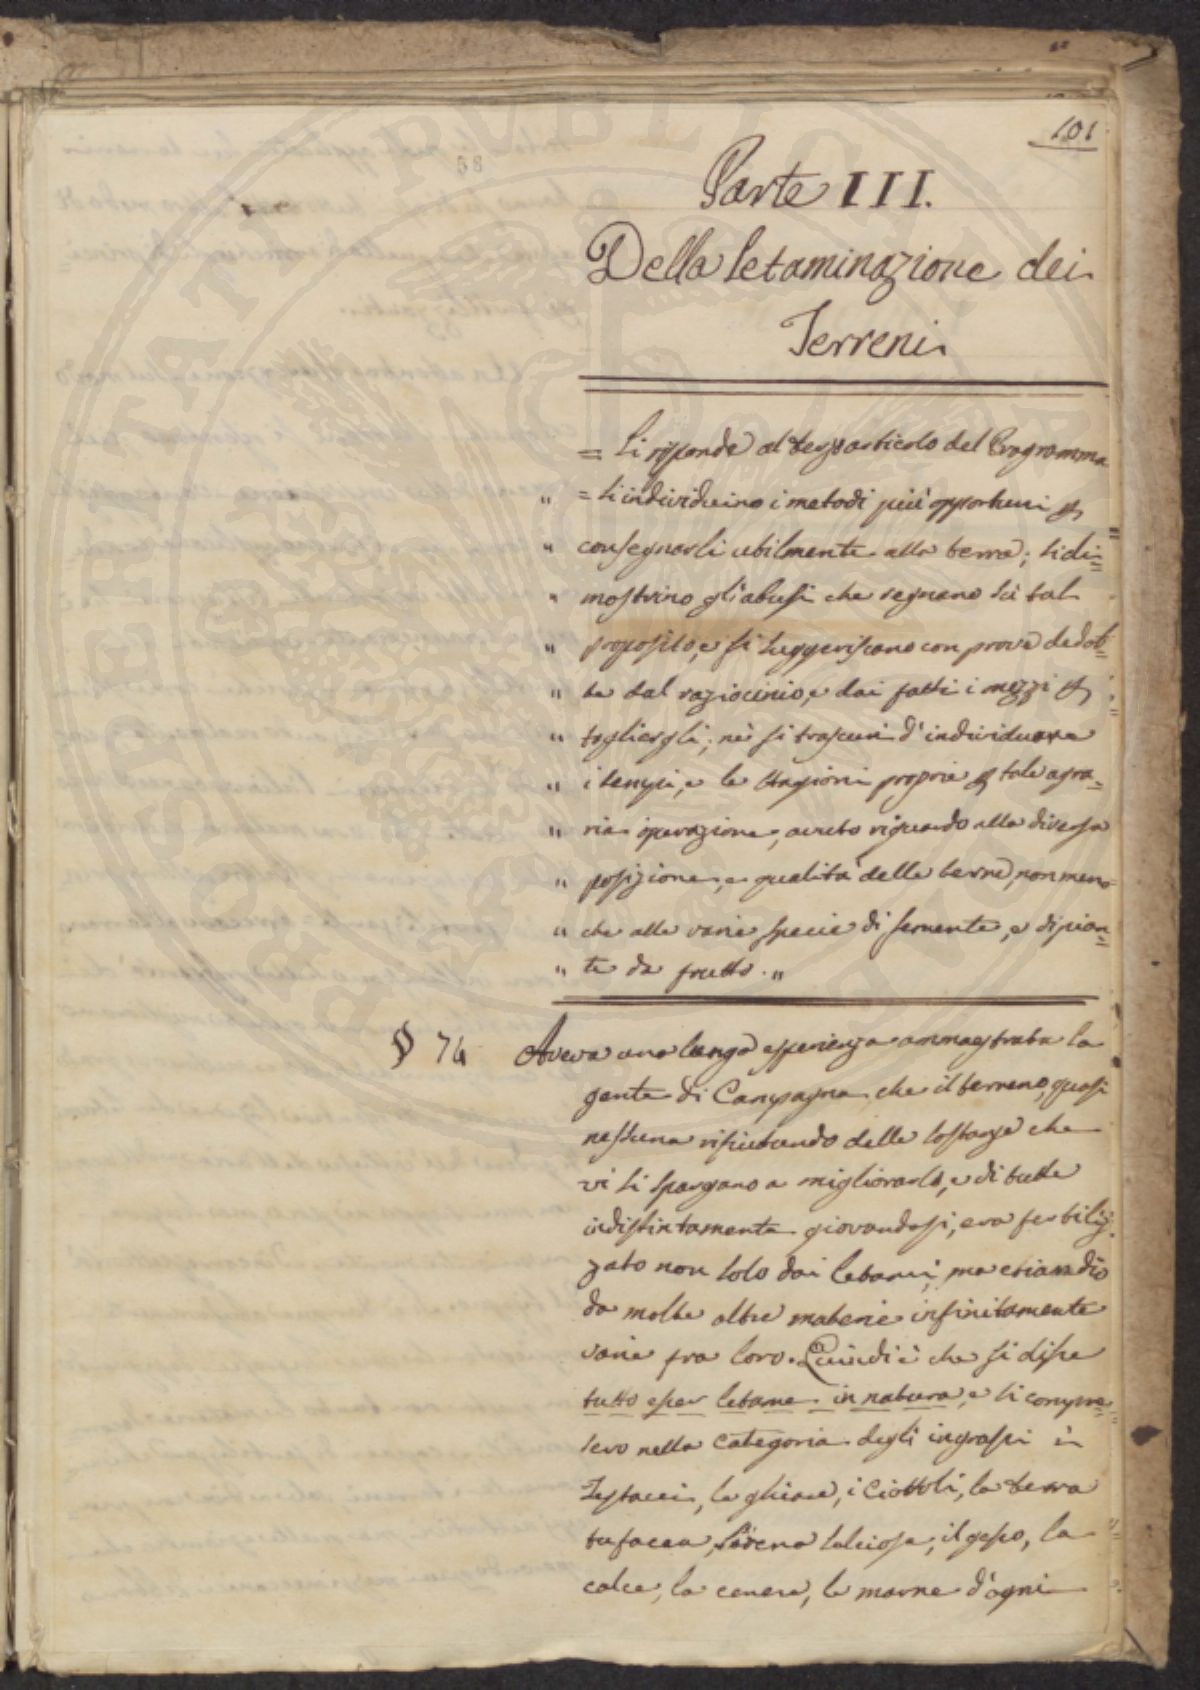 101
58
Parte III.
Della letaminazione dei
Terreni
= Si risponde al terzo articolo del Programma
" = Si individuino i metodi più opportuni p
" consegnarli utilmente alla terra; si di=
" mostrino gli abusi che regnano su tal
" proposito, e si suggeriscano con prove dedot=
" te dal raziocinio, e dai fatti i mezzi p
" togliergli; nè si trascuri d'individuare
" i tempi, e le stagioni proprie p tale agra=
" ria operazione, avuto riguardo alla diversa
" posizione, e qualità delle terre, non meno
" che alle varie specie di semente, e di pian=
" te da frutto. "
§ 74 Aveva una lunga esperienza ammaestrata la
gente di Campagna che il terreno, quasi
nessuna rifiutando delle sostanze che
vi si spargano a migliorarlo, e di tutte
indistintamente giovandosi, era fertiliz=
zato non solo dai letami, ma eziandio
da molte altre materie infinitamente
varie fra loro. Quindi è che si disse
tutto esser letame in natura, e si compre=
sero nella categoria degli ingrassi i
Testacei, le ghiare, i Ciottoli, la terra
tufacea, l'arena selciosa, il gesso, la
calce, la cenere, le marne d'ogni